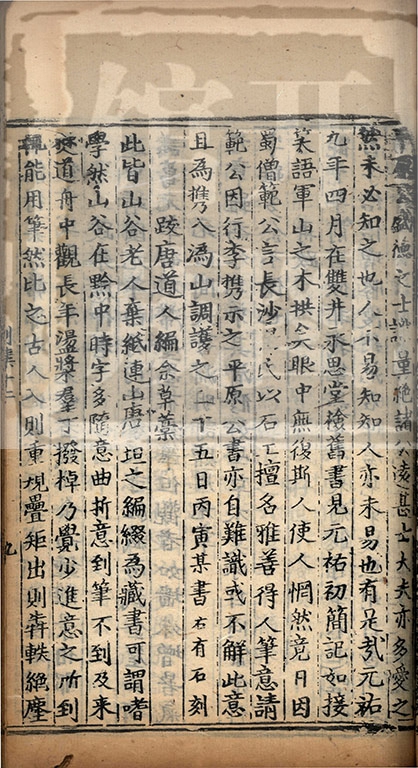 盛德之士量絕諸公淩甚士大夫亦多愛之
然未必知之也人不易知知人亦未易也有是哉元祐
九年四月在雙井永思堂檢舊書見元祐初簡記如接
笑語軍山之木拱矣眼中無復斯人使人惘然竟日因
蜀僧範公言長沙民以石工擅名雅善得人筆意請
範公因行李攜示之平原公書亦自難識或不解此意
且為攜入溈山調護之十五日丙寅某書右有石刻
跋唐道人編余草藁
此皆山谷老人棄紙連山唐坦之編綴為藏書可謂嗜
學然山谷在黔中時字多隨意曲折意到筆不到及來
僰道舟中觀長年盪槳羣丁撥棹乃覺少進意之所到
輒能用筆然比之古人入則重規疊矩出則奔軼絕塵
別集十二
九